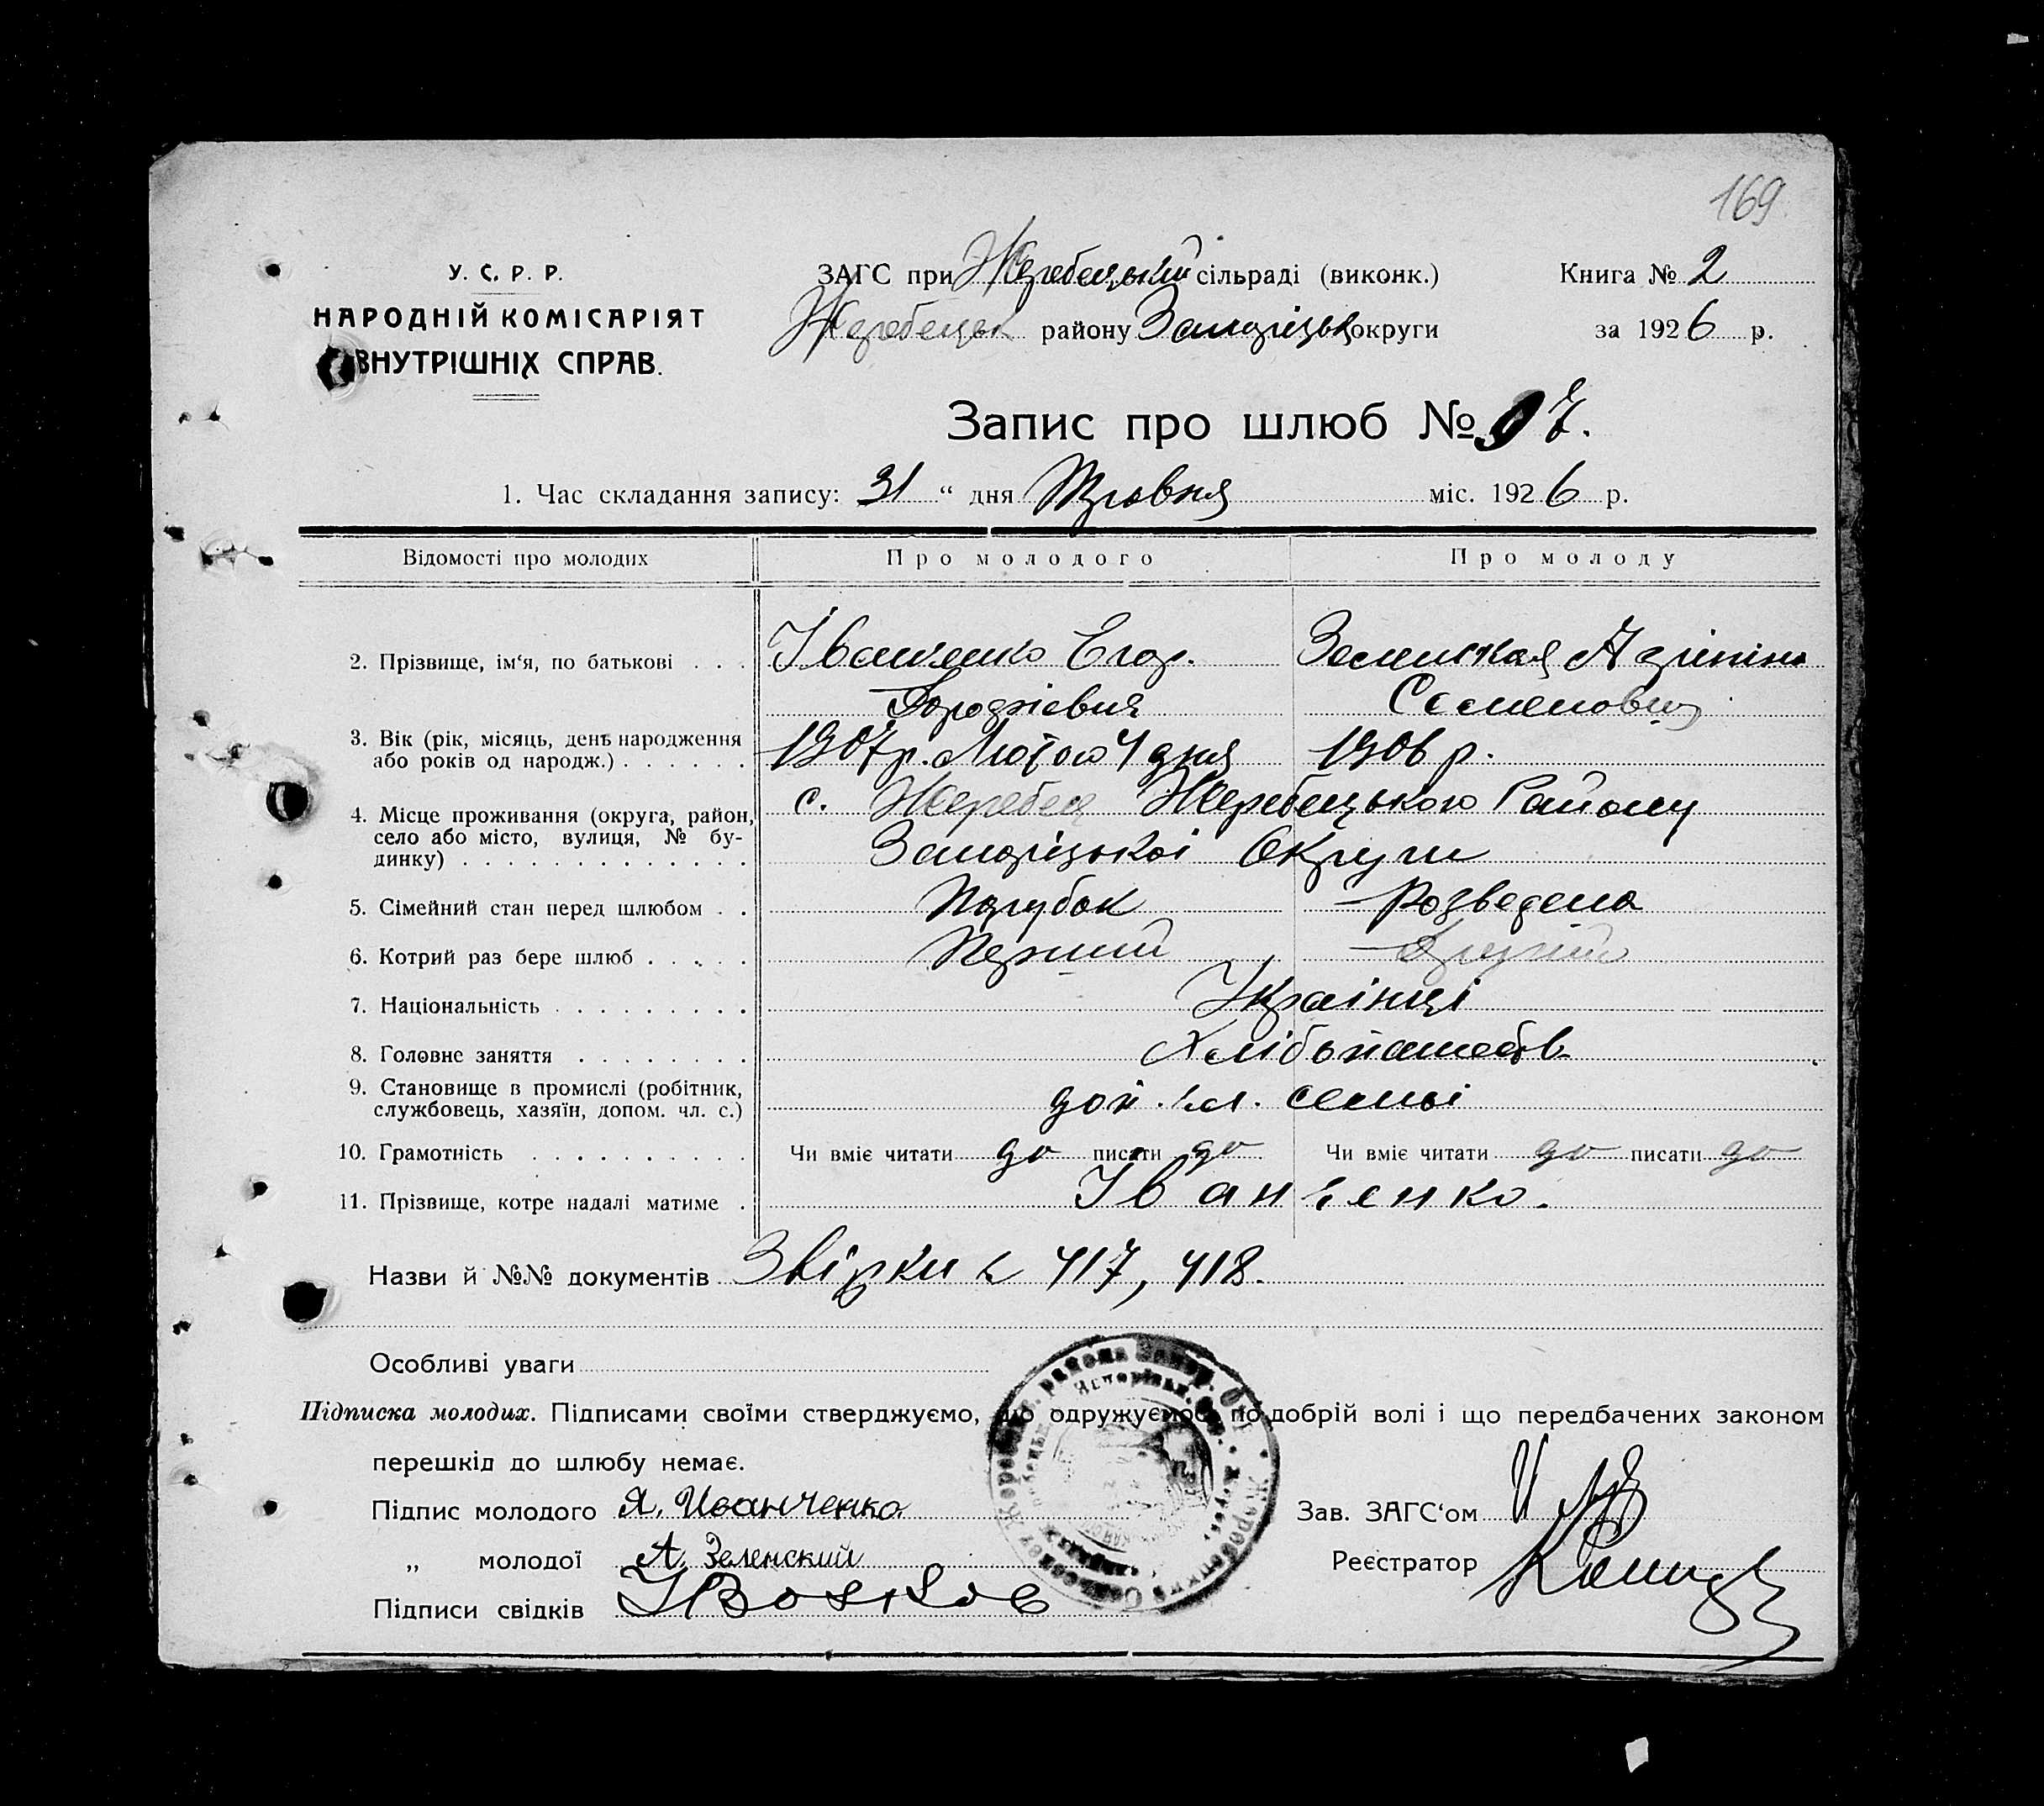 169
У. С. Р. Р.
НАРОДНІЙ КОМІСАРІЯТ
ВНУТРІШНІХ СПРАВ.
ЗАГС при Жеребецькій сільраді (виконк.)
Жеребецьк району Запорізьк округи
Книга № 2
за 1926 р.
Запис про шлюб № 97.
1. Час складання запису: 31 " дня Травня міс. 1926 р.
Відомості про молодих Про молодого Про молоду
2. Прізвище, ім'я, по батькові . . . Іванченко Егор. Зеленская Агріпіна
Семеновна
3. Вік (рік, місяць, день народження
або років од народж.) . . . . . . 1907 р. Лютого 4 дня 1906 р.
4. Місце проживання (округа, район, с. Жеребец Жеребецького Району
село або місто, вулиця, № бу-
динку) . . . . . . . . . . . . . Запорізькоі Округи
5. Сімейний стан перед шлюбом . . Парубок Розведена
6. Котрий раз бере шлюб . . . . . Перший Другий
7. Національність . . . . . . . . . Украінці
8. Головне заняття . . . . . . . . Хлібопашеств
9. Становище в промислі (робітник,
службовець, хазяїн, допом. чл. с.) доп. чл. семьі
10. Грамотність . . . . . . . . . . Чи вміє читати до писати до Чи вміє читати до писати до
11. Прізвище, котре надалі матиме . Іванченко.
Назви й №№ документів Звірки № 417, 418.
Особливі уваги
Підписка молодих. Підписами своїми стверджуємо, що одружуємось по добрій волі і що передбачених законом
перешкід до шлюбу немає.
Підпис молодого Я. Иванченко
„ молодої А. Зеленский
Підписи свідків
Зав. ЗАГС'ом
Реєстратор